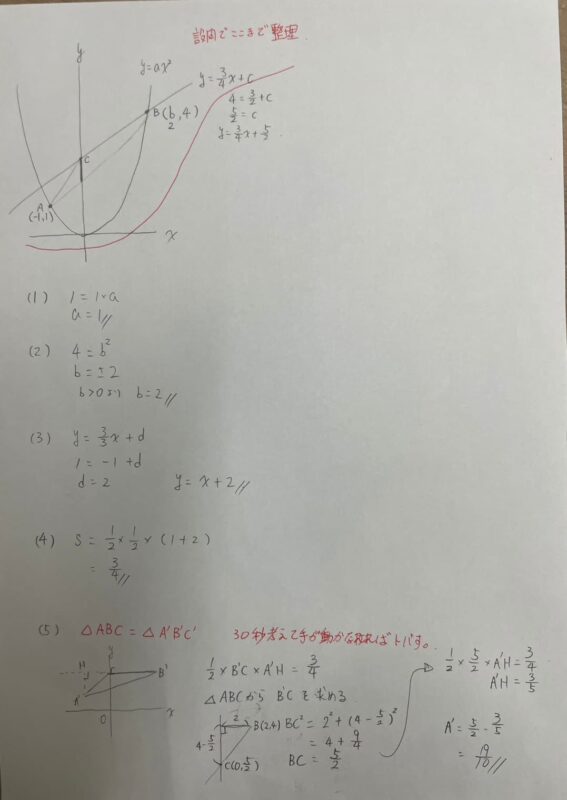 設問でここまで整理
y
y=ax²
y=3/4x+c
B(b,4)
2
4=3/2+c
5/2=c
y=3/4x+5/2
C
A
(-1,1)
x
(1) 1=1×a
a=1//
(2) 4=b²
b=±2
b>0より b=2//
(3) y=3/3x+d
1=-1+d
d=2 y=x+2//
(4) S=1/2×1/2×(1+2)
=3/4//
(5) △ABC=△A'B'C' 30秒考えて手が動かなければトバす。
y
H
C'
B'
A'
O
x
1/2×B'C'×A'H=3/4
△ABCからB'C'を求める
2
B(2,4)
4-5/2
C(0,5/2)
BC²=2²+(4-5/2)²
=4+9/4
BC=5/2
1/2×5/2×A'H=3/4
A'H=3/5
A'=5/2-3/5
=19/10//